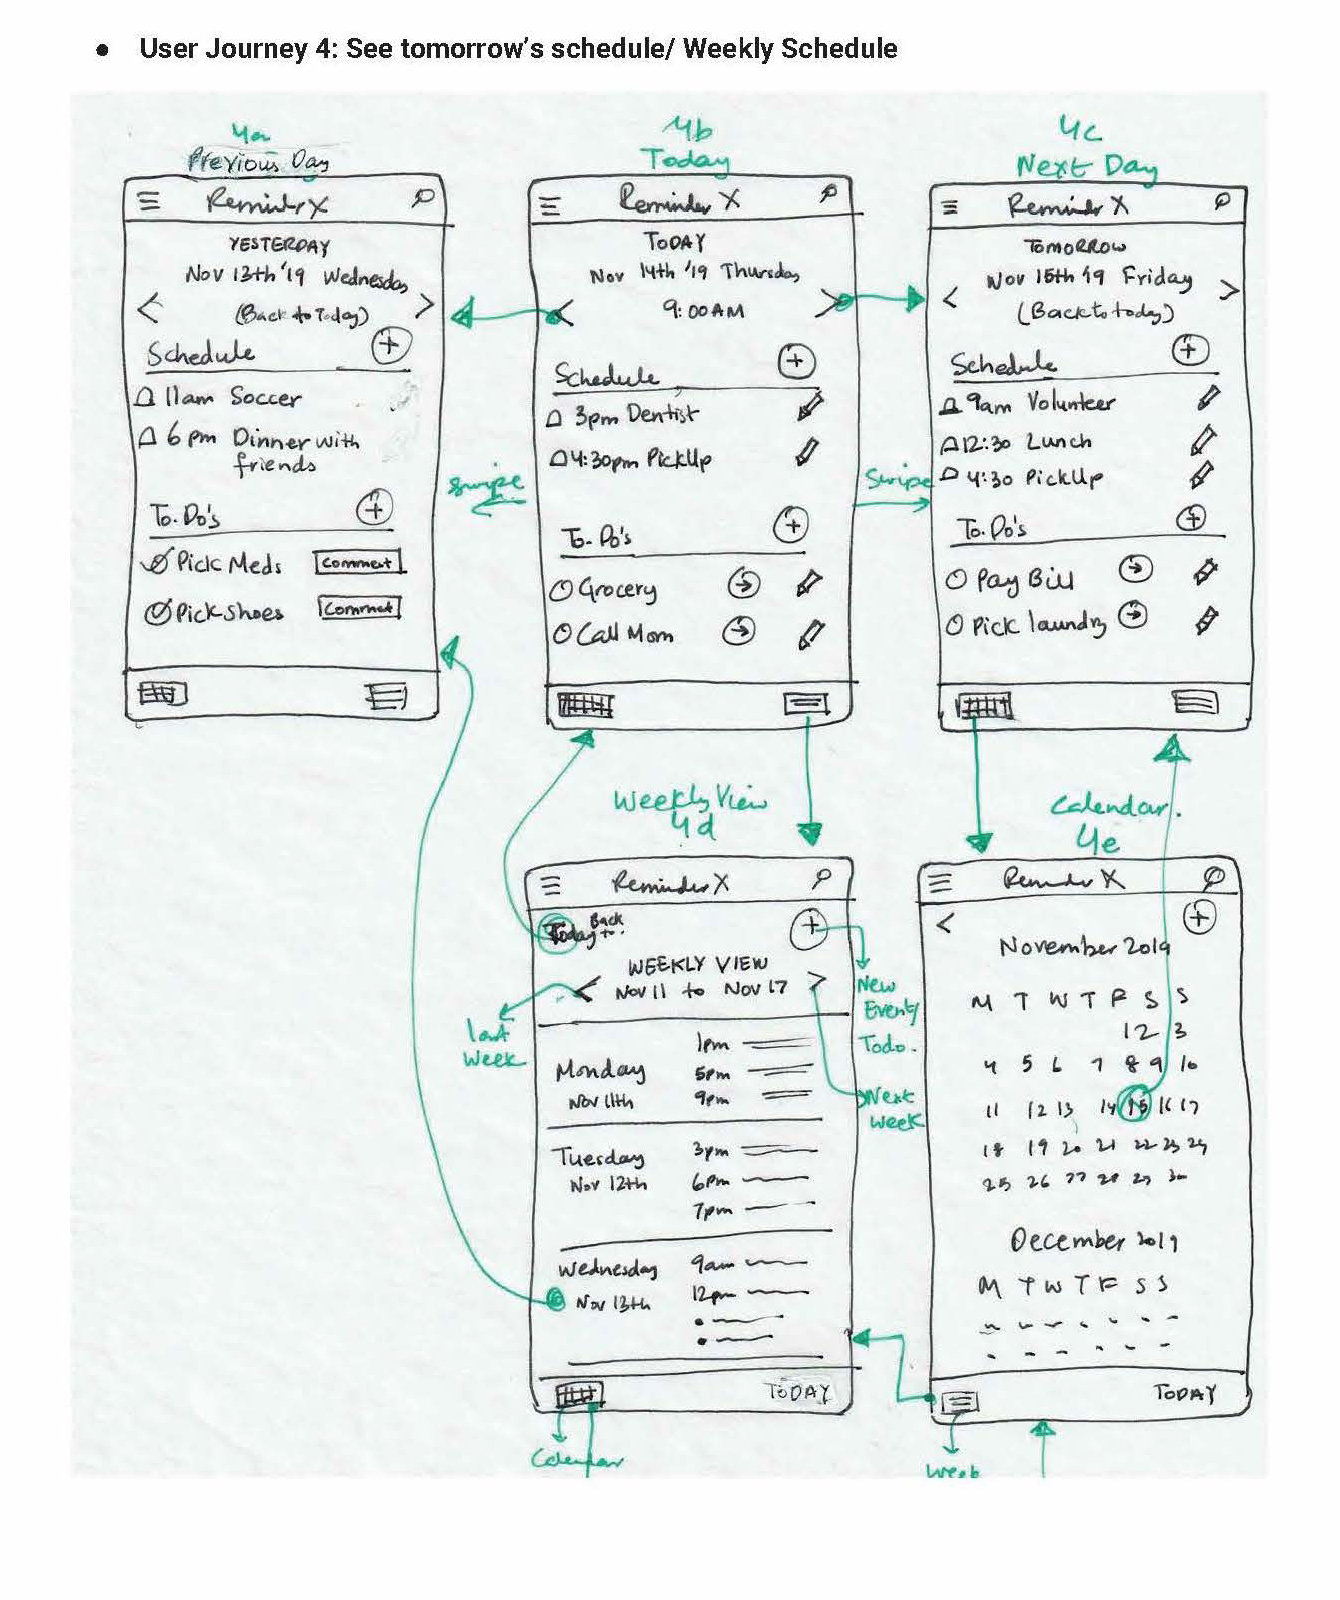 ● User Journey 4: See tomorrow's schedule/ Weekly Schedule
4a
Previous Day
Reminder X
YESTERDAY
Nov 13th '19 Wednesday
< (Back to Today) >
Schedule +
11am Soccer
6 pm Dinner with
friends
To-Do's +
Pick Meds Comment
Pick Shoes Comment
4b
Today
Reminder X
TODAY
Nov 14th '19 Thursday
< 9:00 AM >
Schedule +
3pm Dentist
4:30pm PickUp
To-Do's +
Grocery
Call Mom
4c
Next Day
Reminder X
TOMORROW
Nov 15th '19 Friday
< (Back to today) >
Schedule +
9am Volunteer
12:30 Lunch
4:30 PickUp
To-Do's +
Pay Bill
Pick laundry
Swipe
Swipe
Weekly View
4d
Reminder X
Back
Today to. +
WEEKLY VIEW
< Nov 11 to Nov 17 >
1pm
Monday 5pm
Nov 11th 9pm
Tuesday 3pm
Nov 12th 6pm
7pm
Wednesday 9am
Nov 13th 12pm
TODAY
last
week
New
Event/
Todo.
Next
week
Calendar
Calendar.
4e
Reminder X
< +
November 2019
M T W T F S S
1 2 3
4 5 6 7 8 9 10
11 12 13 14 15 16 17
18 19 20 21 22 23 24
25 26 27 28 29 30
December 2019
M T W T F S S
TODAY
Week